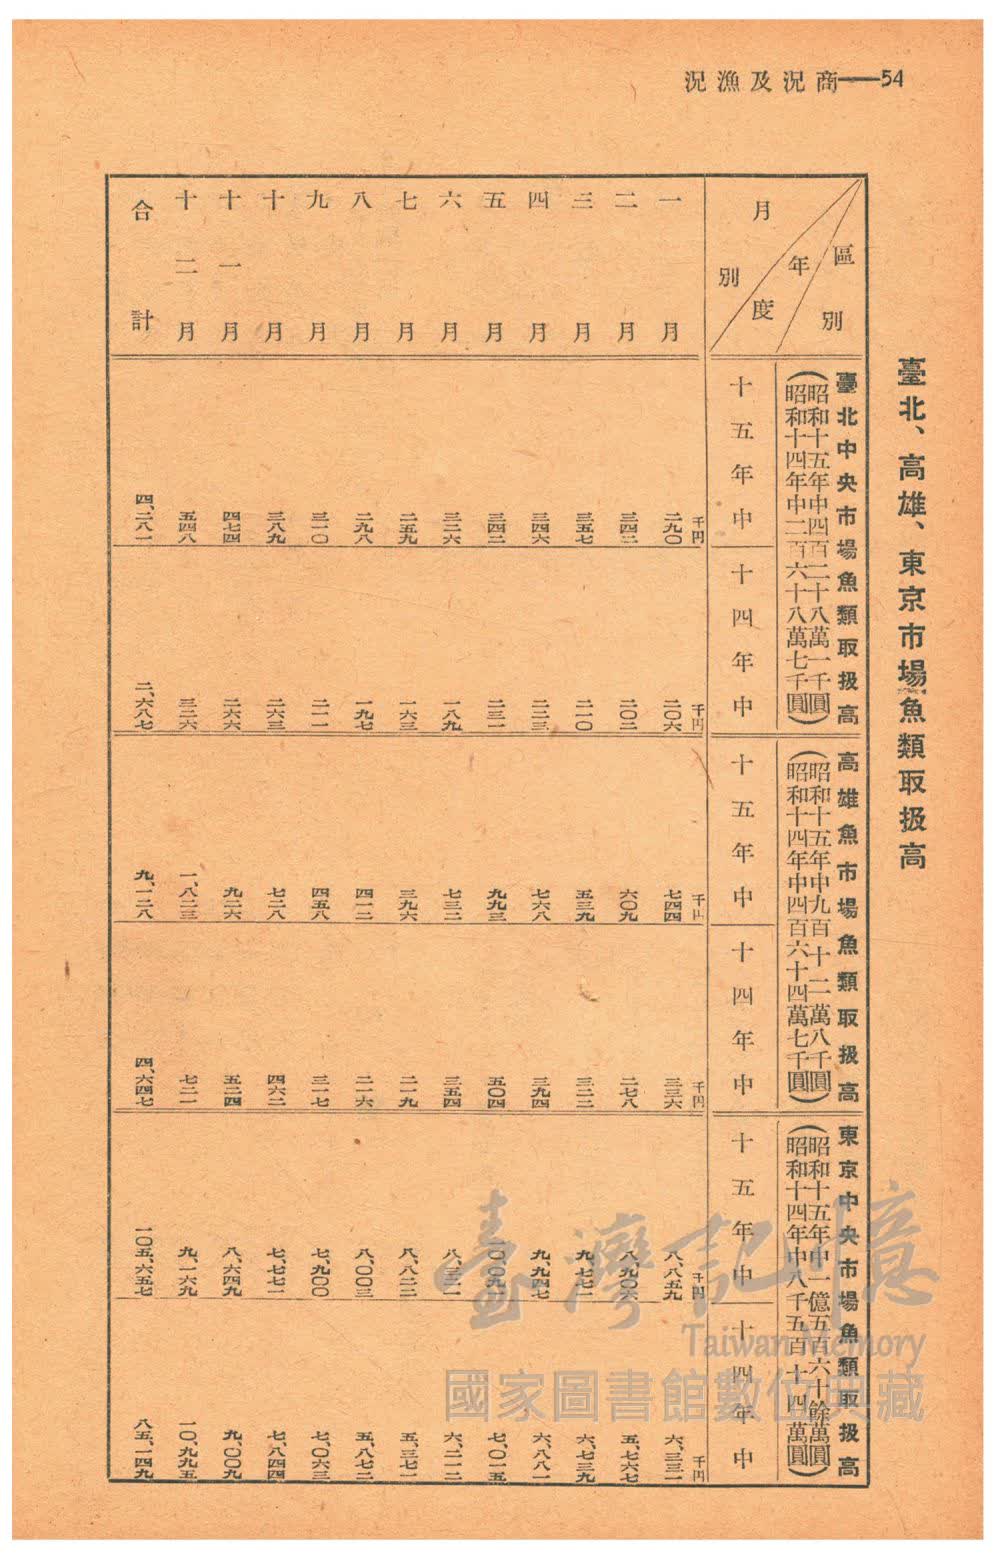 54——商況及漁況
臺北、高雄、東京市場魚類取扱高
區別
年度
月別
臺北中央市場魚類取扱高
(昭和十五年中四百二十八萬一千圓
昭和十四年中二百六十八萬七千圓)
高雄魚市場魚類取扱高
(昭和十五年中九百十二萬八千圓
昭和十四年中四百六十四萬七千圓)
東京中央市場魚類取扱高
(昭和十五年中一億五百六十餘萬圓
昭和十四年中八千五百十四萬圓)
十五年中 十四年中 十五年中 十四年中 十五年中 十四年中
千円 千円 千円 千円 千円 千円
一月 二九〇 二〇六 七四四 三三六 八、八五九 六、三三一
二月 三四二 二〇二 六〇九 二七八 八、九〇六 五、七六七
三月 三五七 二一〇 五三九 三二二 九、七七二 六、七三九
四月 三四六 二二三 七六八 三九四 九、九四七 六、八八一
五月 三四二 二三一 九九三 五〇四 七、〇一五
六月 三二六 一八九 七三二 三五四 八、三二一 六、二一二
七月 二五九 一六三 三九六 二一九 八、八二二 五、三七一
八月 二九八 一九七 四一二 二一六 八、〇〇三 五、八七二
九月 三一〇 二一一 四五八 三一七 七、九〇〇 七、〇六三
十月 三八九 二六三 七二八 四六二 七、七七一 七、八四四
十一月 四七四 二六六 九二六 五〇四 八、六四九 九、〇〇九
十二月 五四八 三二六 一、八二三 七二一 九、一六九 一〇、九九五
合計 四、二八一 二、六八七 九、一二八 四、六四七 一〇五、六五七 八五、一四九
臺灣記憶
Taiwan Memory
國家圖書館數位典藏